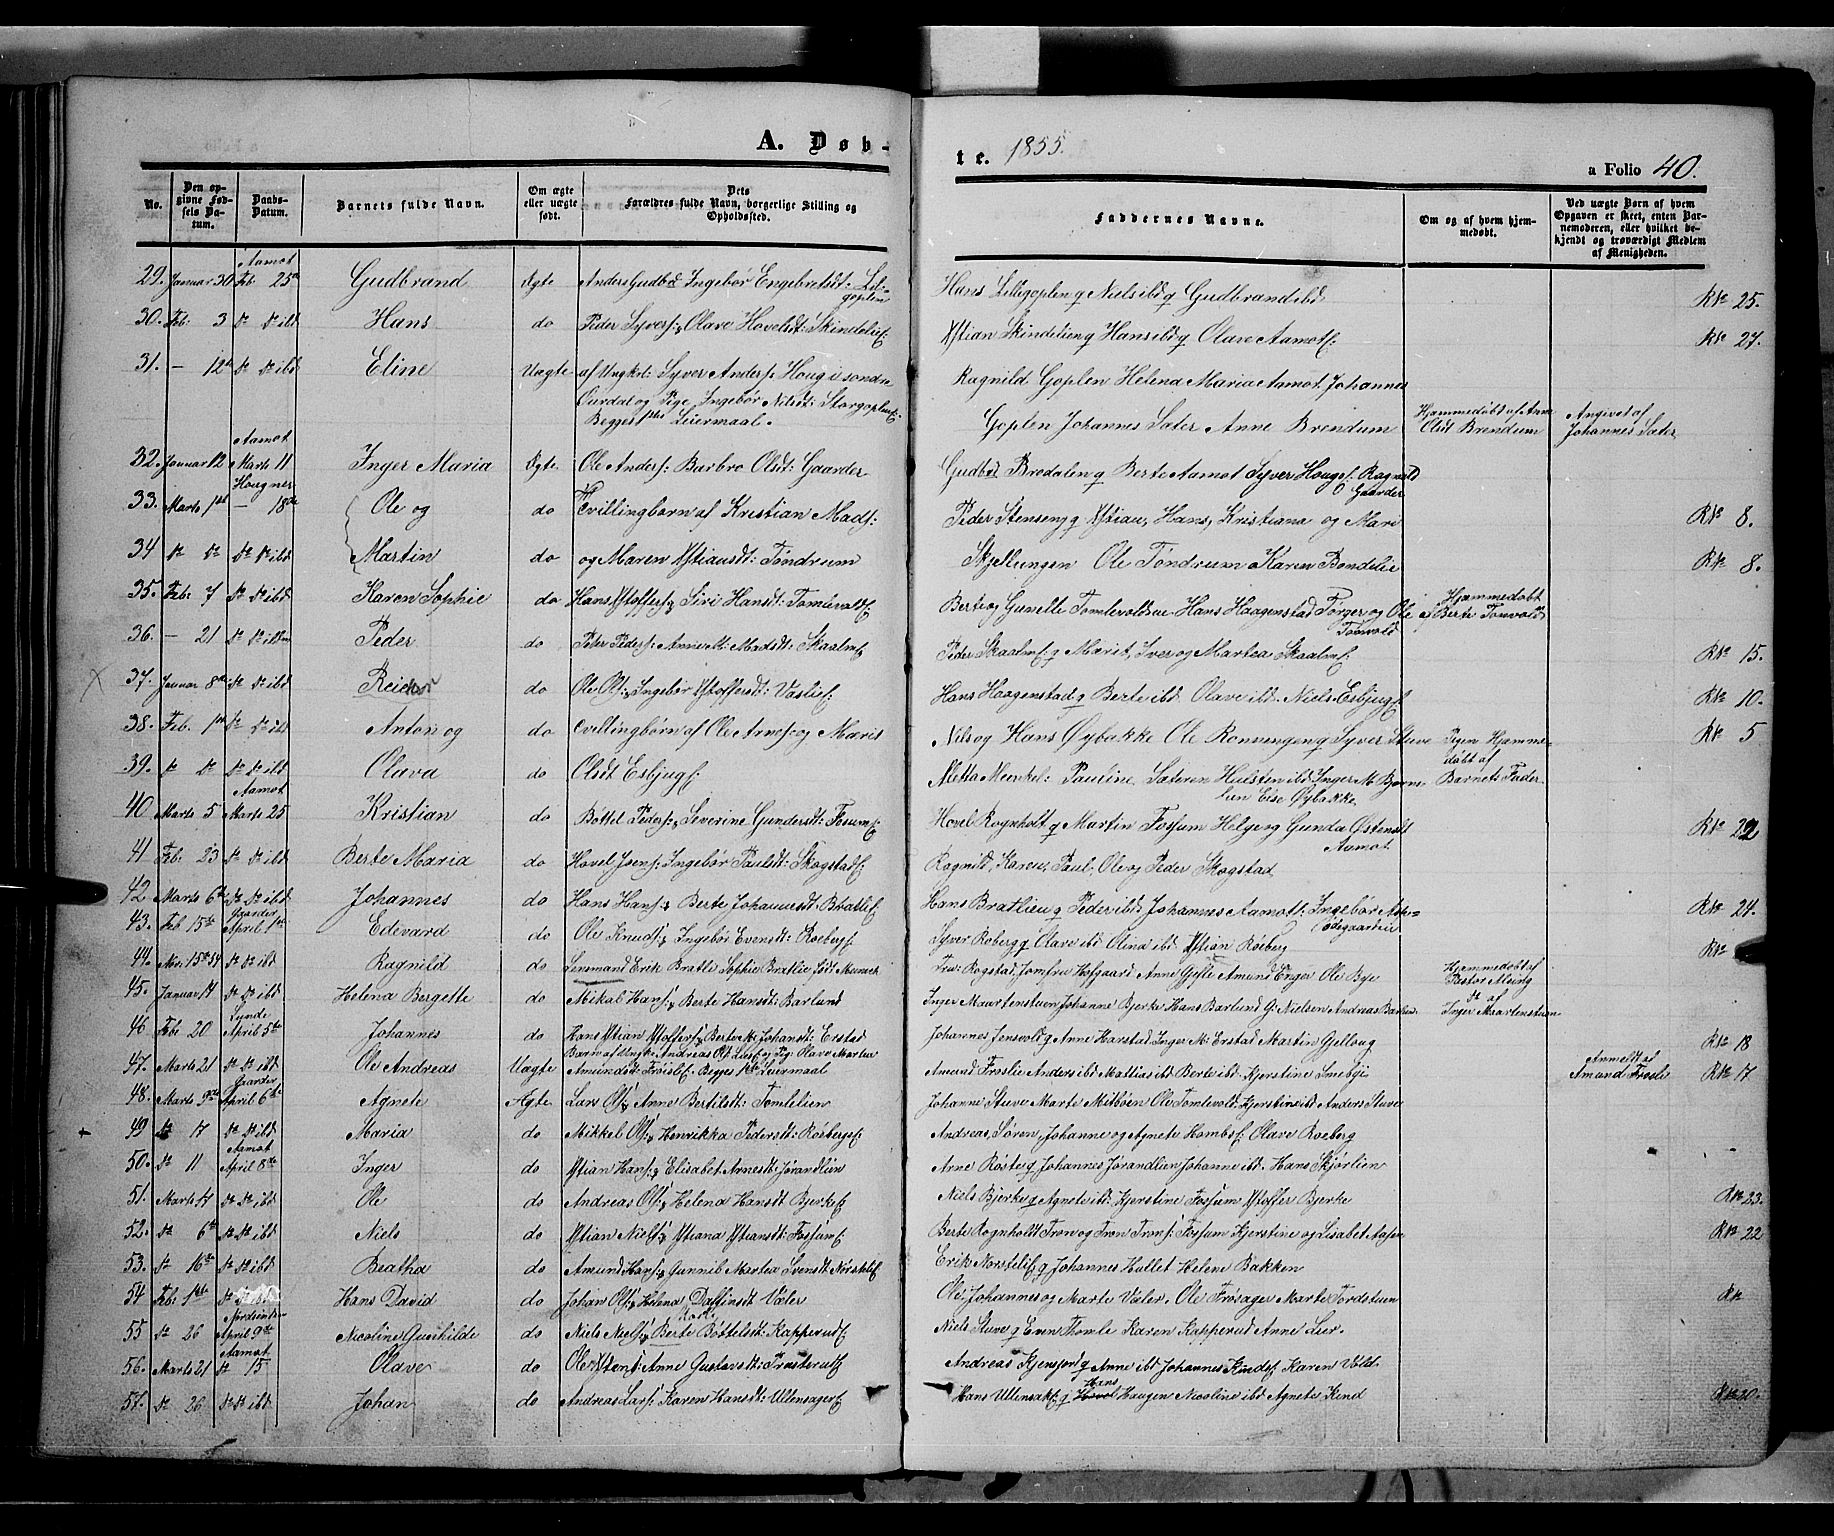 A. Døb-
te. 1855.
a Folio 40.
No.
Den op-
givne Fød-
sels Da-
tum.
Daabs-
Datum.
Barnets fulde Navn.
Om ægte
eller uægte
født.
Dets
Forældres fulde Navn, borgerlige Stilling og
Opholdssted.
Faddernes Navne.
Om og af hvem hjem-
medøbt.
Ved uægte Børn af hvem
Opgaven er skeet, enten Bar-
nemoderen, eller hvilket be-
kjendt og troværdigt Medlem
af Menigheden.
Aamot
29. Januar 30 Feb 25de Gudbrand Ægte Anders Gudbd Ingebør Engebretsdt: Lil-
goplen
Hans Lillegoplen g Niels ibd g Gudbrand ibd RNo 25.
30. Feb: 3 do do ibd Hans do Peder Syvers: Olave Hovelsdt: Skindelief
Xstian Skindelien g Hans ibd g Olave Aamot RNo 27.
31. - 12te do do ibd Eline Uægte af Ungkl: Syver Anders: Houg i søndre
Ourdal og Pige Ingebør Nilsdt: Storgoplen
Begges 1ste Leiermaal.
Ragnild Goplen Helena Maria Aamot Johannes
Goplen Johannes Sater Anne Brendum
Hjemmedøbt af Anne
Olsdt Brendum
Angivet af
Johannes Sater
Aamot
32. Januar 12 Marts 11 Inger Maria Ægte Ole Anders: Barbro Olsdt: Gaarder
Gudbd Brodalen g Berte Aamot Syver Houg Ragnild
Gaarder
Hougner
33. Marts 1ste - 18de Ole og do Tvillingbørn af Kristian Mads:
Peder Stenseng g Xstian, Hans, Kristiana og Mari RNo 8.
34 do do do do ibd Martin do og Maren Xstiansdt: Tøndrum
Skjellungen Ole Tøndrum Karen Bondelie RNo 8.
35. Feb: 7 do do ibd Karen Sophie do Hans Xstoffers: Siri Hansdt: Tomlevold
Berte og Gunelle Tomlevoldeie Hans Haagenstad Tørger og Ole
Tomvold
Hjemmedøbt
af Berte Tomvold
36. - 21 do do ibd Peder do Peter Peders: Anne M: Madsdt: Skaalm
Peder Skaalm g Marit, Iver og Martea Skaalm RNo 15.
37. Januar 8de do do ibd Reier do Ole Ols: Ingebør Xstoffersdt: Vaslief
Hans Haagenstad g Berte ibd Olave ibd Niels Esbjug RNo 10.
38. Feb. 1ste do do ibd Anton og do Tvillingbørn af Ole Arnes: og Maris
Nils og Hans Øybakke Ole Ronningen g Syver Stuve RNo 5
39. do do do do ibd Olava do Olsdt Esbjug
Metta Meinkel: Pauline Sateren Hulsten ibd Inger M Bjørn-
lien Eise Øybakke
Pigen Hjemme-
døbt af
Barnets Fader
Aamot
40 Marts 5 Marts 25 Kristian do Bøttel Peders: Severine Gundersdt: Fosum
Hovel Rognholt g Martin Fossum Helge og Gunda Østensdt
Aamot RNo 22
41 Feb: 23 do do ibd Berte Maria do Hovel Joens: Ingebør Paulsdt: Skogstad
Ragnild, Karen, Paul, Ole og Peder Skogstad
42 Marts 6te do do ibd Johannes do Hans Hans: Berte Johannesdt: Bratlief
Hans Bratlien g Peder ibd Johannes Aamot Ingebør Aske-
ødegaardeie RNo 24.
Gaarder
43. Feb 15de April 1ste Edevard do Ole Knuds: Ingebør Evensdt: Roeberg
Syver Roberg g Olave ibd Olina ibd Xstian Røeberg RNo
44. Nov: 15de 54 do do ibd Ragnild do Lensmand Erik Bratlie Sophie Bratlie født Muncek
Fru: Rogstad Jomfru Hofgaard Anne Gyfte Amund Enger Ole Bye
Hjemmedøbt af
Pastor Alsing
45. Januar 14 do do ibd Helena Bergette do Mikal Hans: Berte Hansdt: Barlund
Inger Maartenstuen Johanne Bjerke Hans Barlund G: Nielsen Andreas Barlun
do af
Inger Maartenstuen
Lunde
46 Feb: 20 April 5te Johannes do Hans Xstian Xstoffers: Berte M: Johansdt: Erstad
Johannes Jensvold g Anne Harstad Inger M: Erstad Martin Gjelloug RNo 18
47. Marts 21 do do ibd Ole Andreas Uægte Barn af Ungk: Andreas Ols: Lie og Pig: Olave Martea
Amundsdt: Frøislie Begges 1ste Leiermaal
Amund Frøslie Anders ibd Mattias ibd Berte ibd Kjerstine Smebye
Anmeldt af
Amund Frøslie RNo 17
Gaarder
48. Marts 9de April 6te Agnete Ægte Lars Ols: Anne Bertilsdt: Tomlelien
Johanne Stuve Marte Mitbøen Ole Tomlevold Kjerstine ibd Anders Stuve
49 do 17 do do ibd Maria do Mikkel Ols: Henrikka Pedersdt: Røeberg
Andreas, Søren, Johanne og Agnete Hombs Olave Roeberg
Aamot
50. do 11 April 8de Inger do Xstian Hans: Elisabet Arnesdt: Jørandlien
Arne Røste g Johannes Jørandlien Johanne ibd: Hans Skjørlien
51. Marts 14 do do ibd Ole do Andreas Ols: Helena Hansdt: Bjerke
Niels Bjerke g Agnete ibd: Kjerstine Fossum Xstoffer Bjerke RNo 23.
52. do 6te do do ibd Niels do Xstian Niels: Xstiana Xstiansdt: Fossum
Berte Rognholdt Tron og Tron Trons: Fossum Kjerstine og Lisabet Aasen RNo 22
53. do 16de do do ibd Beatha do Amund Hans: Gunnild Martea Svensdt: Nørstelie
Erik Norstelie g Johannes Hallet Helene Bakken
54 Feb: 1ste do do ibd Hans David do Johan Ols: Helena Dalfinsdt Væler
Ole, Johannes og Marte Væler Ole Frøsager Marte Tordstuen RNo
Nordsinden
55 do 26 April 9de Nicoline Gunhilde do Niels Niels: Berte Bøttelsdt: Kapperud
Niels Stuve g Even Thomle Karen Kapperud Anne Lier
Aamot
56. Marts 21 do 15 Olave do Ole Xstens: Anne Gustavsdt: Trøsterud
Andreas Kjensjord g Anne ibd Johannes Kind Karen Vold
57. do 26 do do ibd Johan do Andreas Lars: Karen Hansdt: Ullensager
Hans Ullensak g Hans Haugen Nicoline ibd Agnete Kind RNo 20.